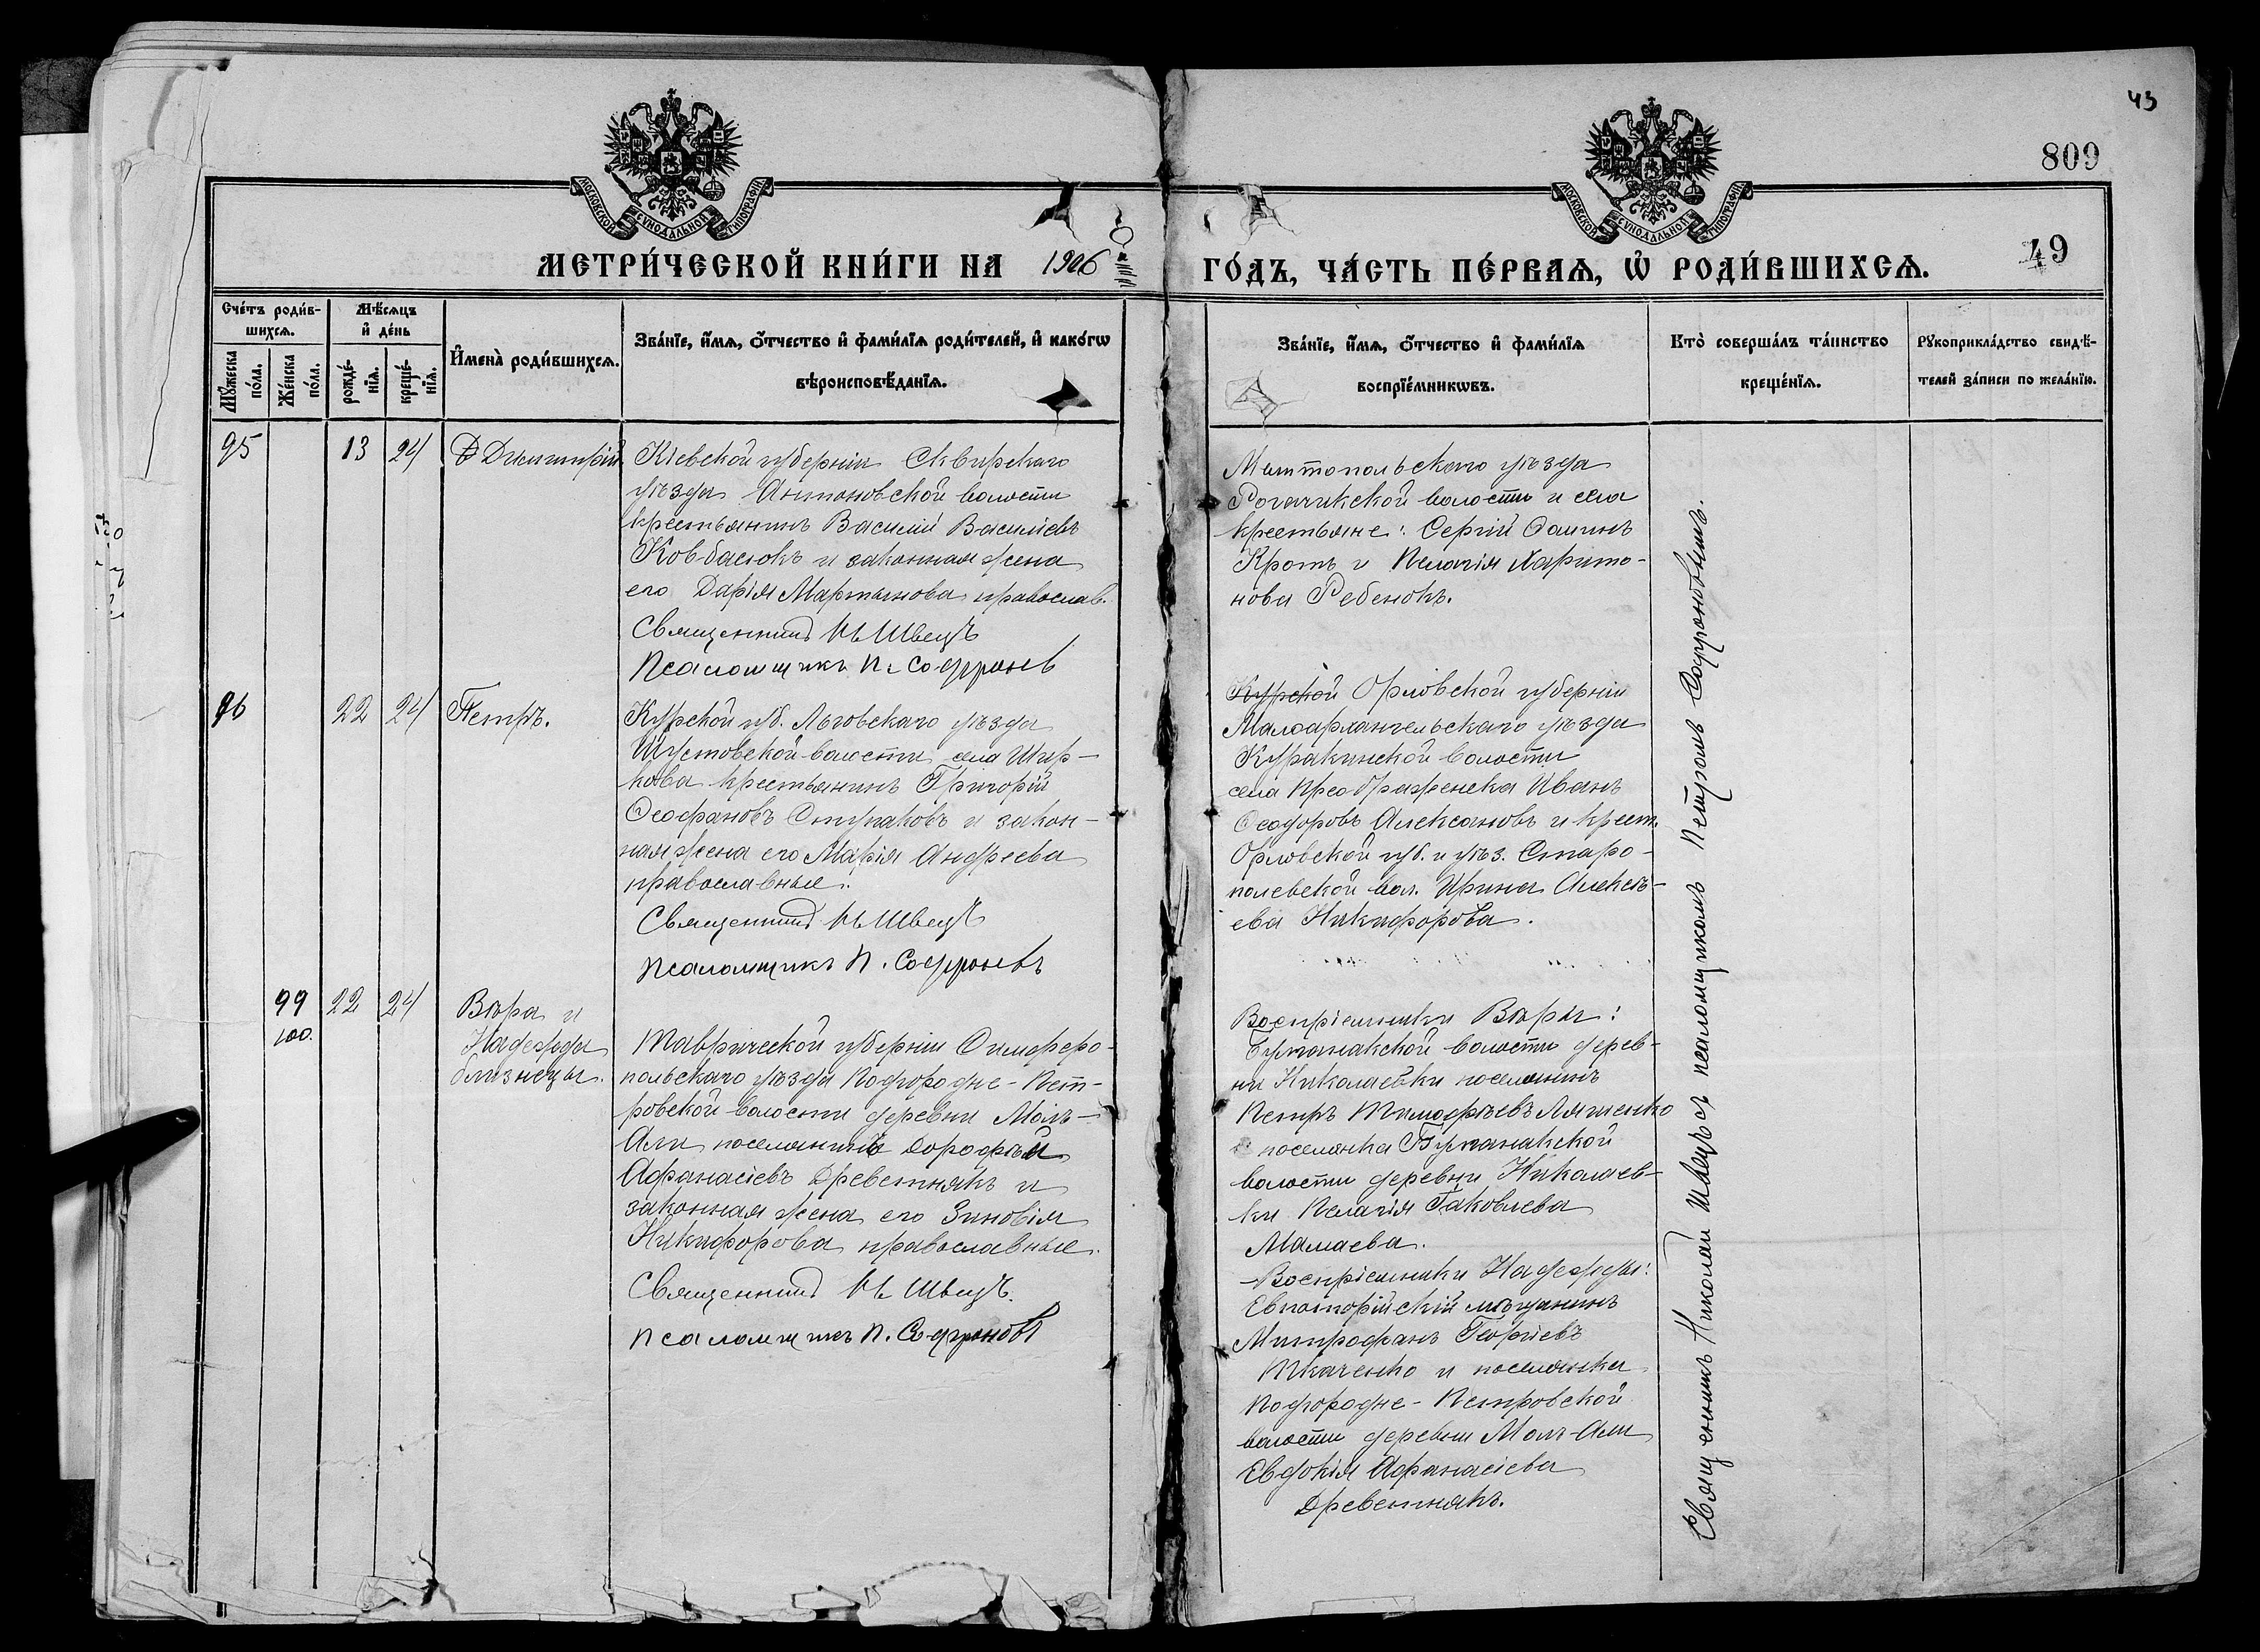 43
809
49
МОСКОВСКОЙ СѴНОДАЛЬНОЙ ТИПОГРАФІИ
МОСКОВСКОЙ СѴНОДАЛЬНОЙ ТИПОГРАФІИ
МЕТРИ́ЧЕСКОЙ КНИ́ГИ НА 1906 ГО́ДЪ, ЧА́СТЬ ПЕ́РВАѦ, Ѡ҆ РОДИ́ВШИХСѦ.
Сче́тъ роди́в-
шихсѧ.
Мѣ́сѧцъ
и҆ де́нь
Мꙋ́жеска
по́ла.
Же́нска
по́ла.
рожде́-
нїѧ.
креще́-
нїѧ.
И҆мена̀ роди́вшихсѧ.
Зва́нїе, и҆́мѧ, ѻ҆́тчество и҆ фами́лїѧ роди́телей, и҆ како́гѡ
вѣроисповѣ́данїѧ.
Зва́нїе, и҆́мѧ, ѻ҆́тчество и҆ фами́лїѧ
воспрїе́мникѡвъ.
Кто̀ соверша́лъ та́инство
креще́нїѧ.
Рꙋкоприкла́дство свидѣ́-
телей за́писи по жела́нїю.
95 13 24 Димитрій
Кіевской губерніи Сквирскаго
уѣзда Антоновской волости
крестьянинъ Василій Васильевъ
Ковбасюкъ и законная жена
его Дарія Мартынова православ.
Священникъ Н Швецъ
Псаломщикъ П. Софроновъ
Мелитопольскаго уѣзда
Рогачикской волости и села
крестьяне: Сергій Фоминъ
Кротъ и Пелагія Харито-
нова Ребенокъ.
96 22 24 Петръ.
Курской губ. Льговскаго уѣзда
Шустовской волости села Шир-
кова крестьянинъ Григорій
Ѳеофановъ Ступаковъ и закон-
ная жена его Марія Андреева
православные.
Священникъ Н Швецъ
Псаломщикъ П. Софроновъ
Курской Орловской губерніи
Малоархангельскаго уѣзда
Куракинской волости
села Преображенска Иванъ
Ѳеодоровъ Алексановъ и крест.
Орловской губ. и уѣз. Старо-
полевской вол. Ирина Алексѣ-
ева Никифорова.
99 22 24 Вѣра и
100. Надежда
близнецы.
Таврической губерніи Симферо-
польскаго уѣзда Подгородне-Пет-
ровской волости деревни Молъ-
Али поселянинъ Дорофей
Афанасіевъ Древетнякъ и
законная жена его Зиновія
Никифорова православные.
Священникъ Н Швецъ.
Псаломщикъ П. Софроновъ
Воспріемники Вѣры:
волости дерев-
ни Николаевки поселянинъ
Петръ Тимофѣевъ Ляшенко
поселянка
волости деревни Николаев-
ки Пелагія Іаковлева
Мамаева.
Воспріемники Надежды:
Евпаторійскій мѣщанинъ
Митрофанъ Георгіевъ
Ткаченко и поселянка
Подгородне-Петровской
волости деревни Молъ-Али
Евдокія Афанасіева
Древетнякъ.
Священникъ Николай Швецъ съ псаломщикомъ Петромъ Софроновымъ.